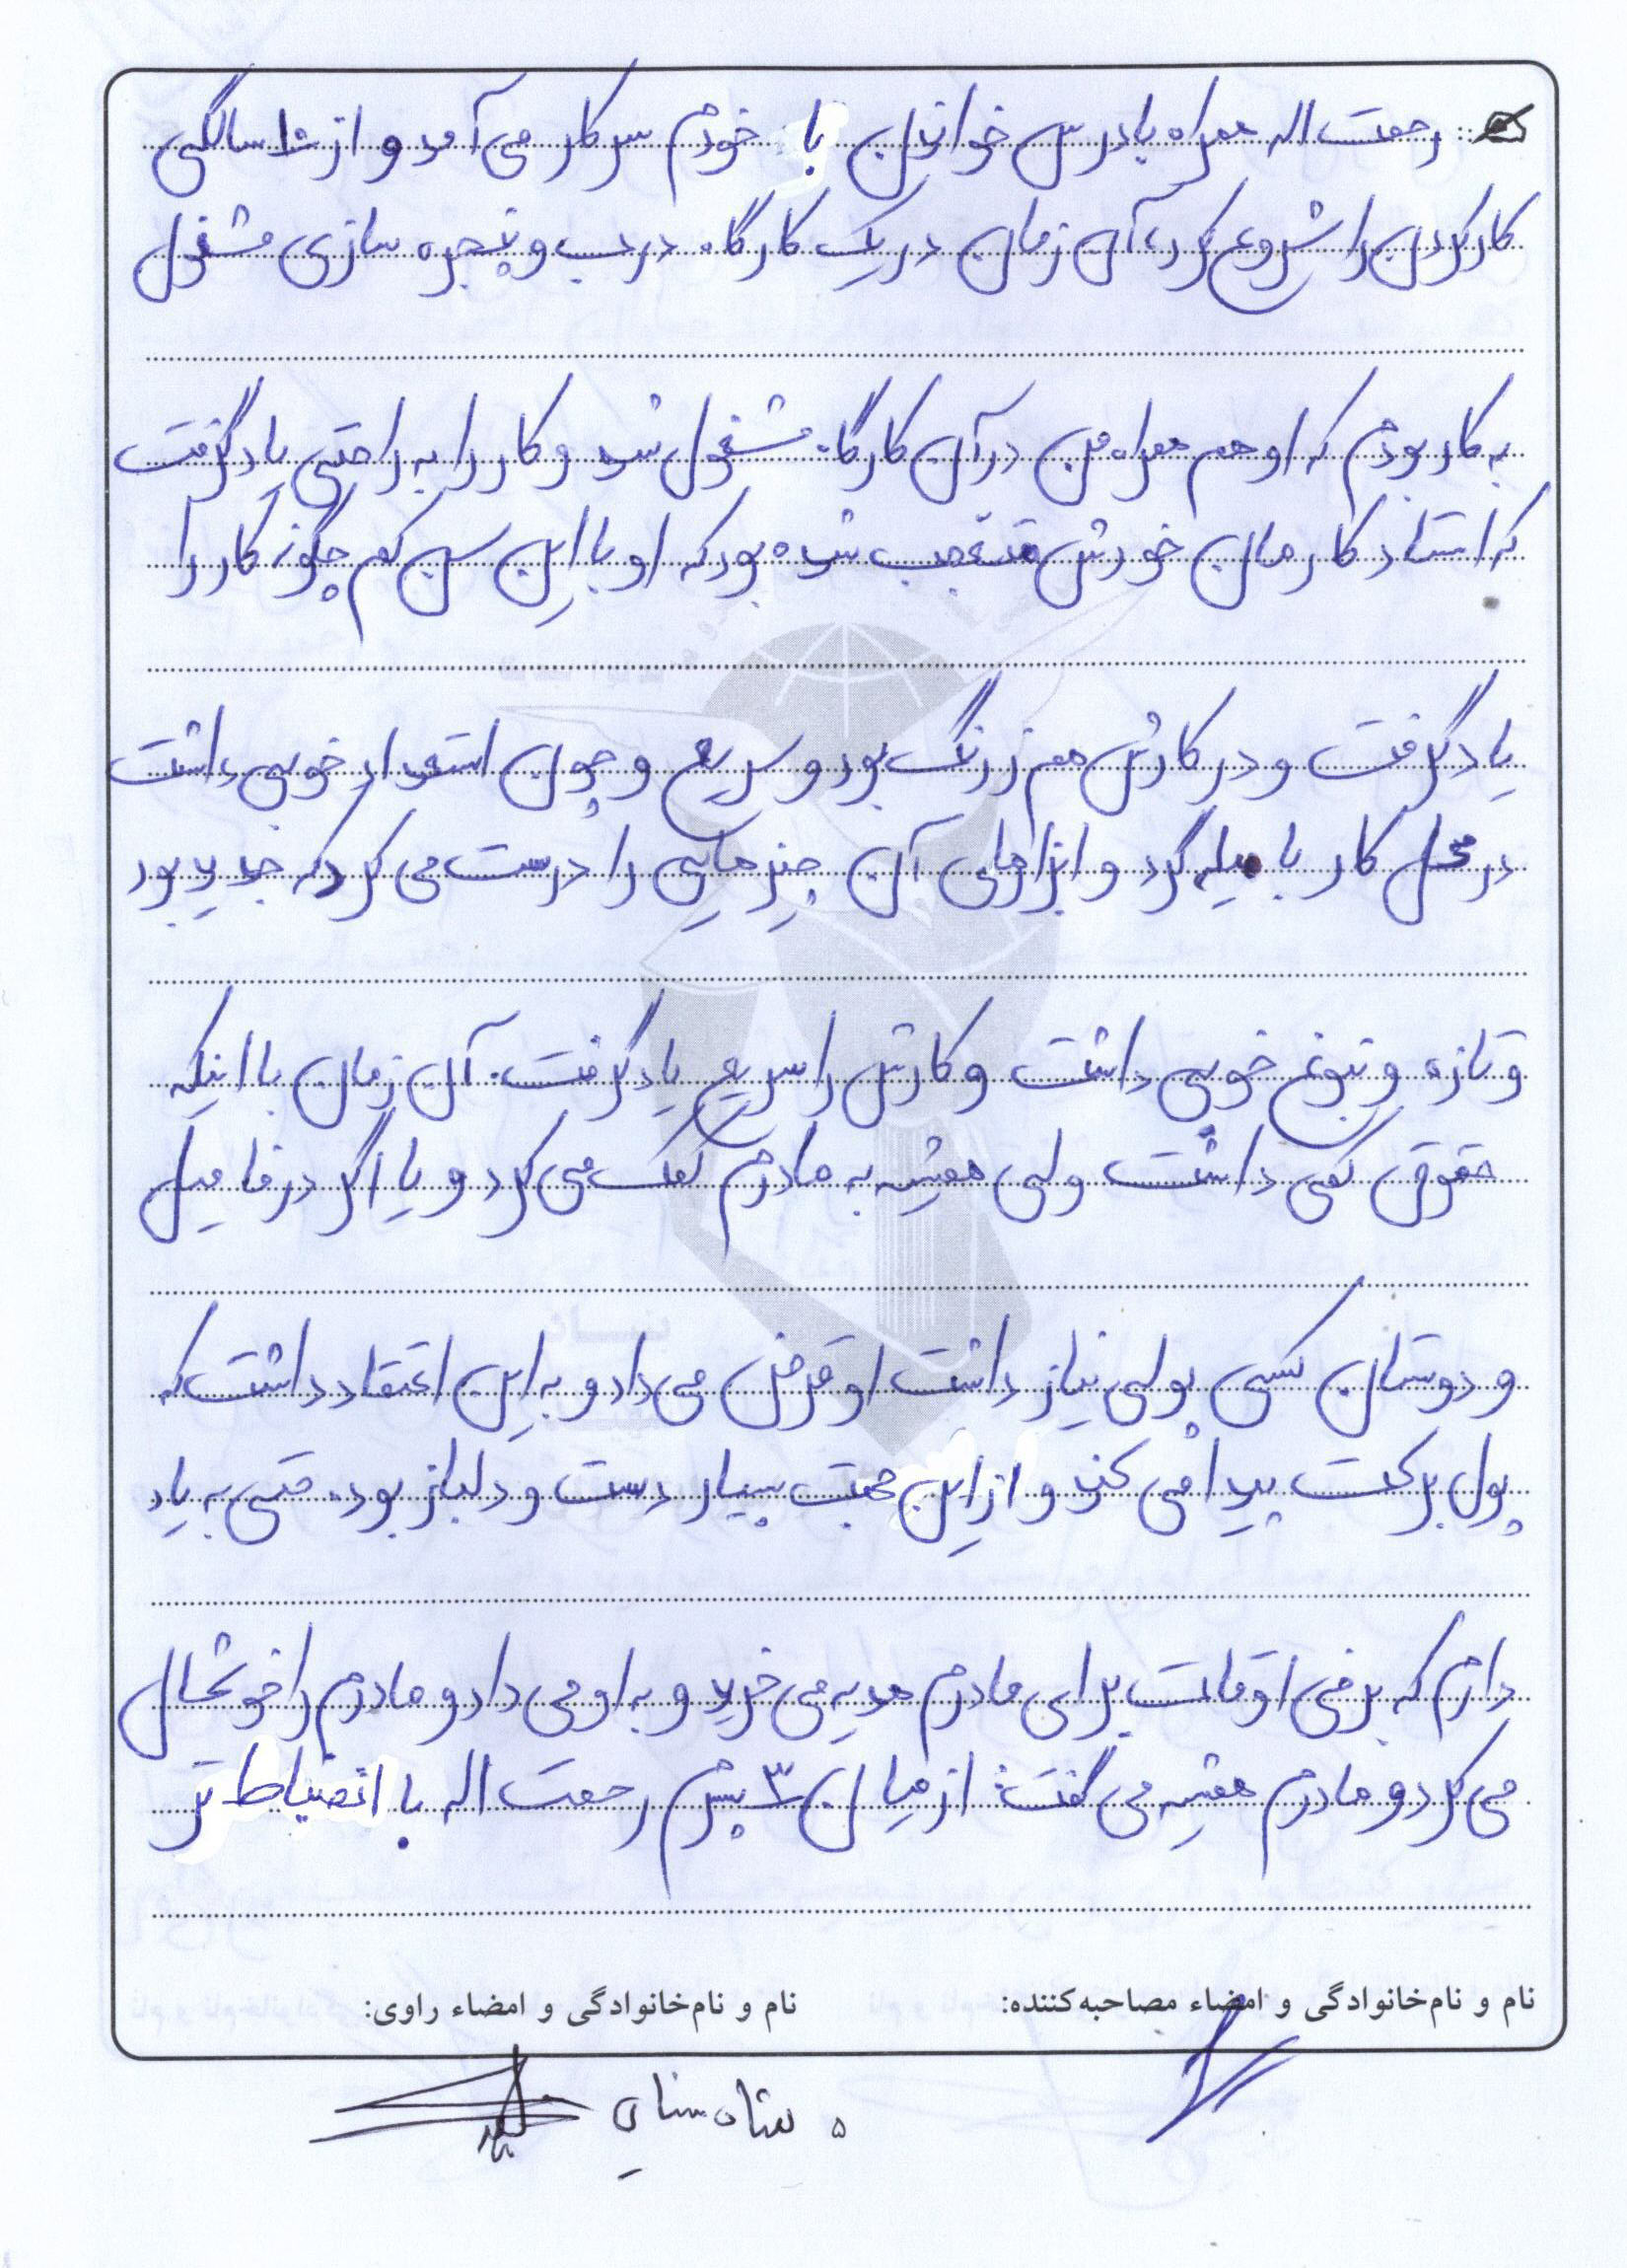 رحمت اله همراه با درس خواندن با خودم سر کار می آمد و از ۱۰ سالگی
کار کردن را شروع کرد، آن زمان در یک کارگاه درب و پنجره سازی مشغول
به کار بودم که او هم همراه من در آن کارگاه مشغول شد و کار را به راحتی یاد گرفت
که استاد کارمان خودش متعجب شده بود که او با این سن کم چگونه کار را
یاد گرفت و در کارش هم زرنگ بود و سریع و چون استعداد خوبی داشت
در محل کار با میله گرد و ابزارهای آن چیزهایی را درست می کرد که جدید بود
و تازه و نبوغ خوبی داشت و کارش را سریع یاد گرفت. آن زمان با اینکه
حقوق کمی داشت ولی همیشه به مادرم کمک می کرد و یا اگر در فامیل
و دوستان کسی پولی نیاز داشت او قرض می داد و به این اعتقاد داشت که
پول برکت پیدا می کند و از این جهت بسیار دست و دلباز بود. حتی به یاد
دارم که برخی اوقات برای مادرم هدیه می خرید و به او می داد و مادرم را خوشحال
می کرد و مادرم همیشه می گفت: از میان ۳ پسرم رحمت اله با انضباط تر
نام و نام خانوادگی و امضاء مصاحبه کننده:
نام و نام خانوادگی و امضاء راوی: